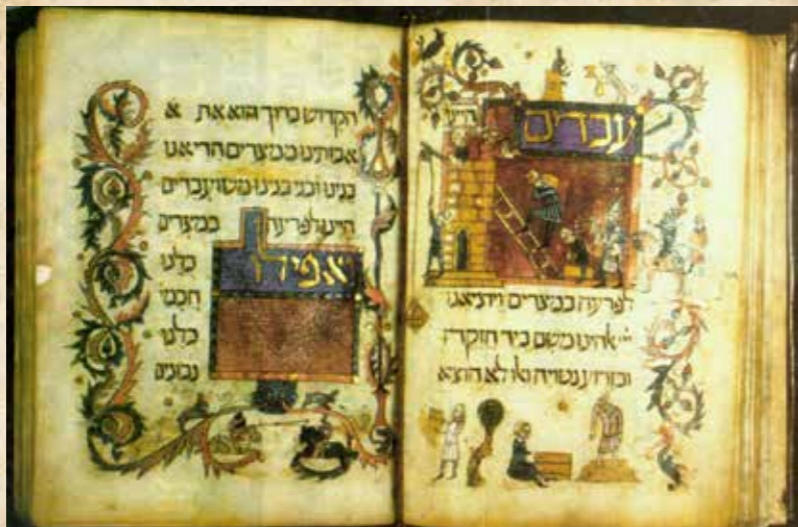 עבדים היינו
לפרעה במצרים ויוציאנו
יי אלהינו משם ביד חזקה
ובזרוע נטויה ואלו לא הוציא
הקדוש ברוך הוא את א
אבותינו ממצרים הרי אנו
בנינו ובני בנינו משועבדים
היינו לפרעה במצרים
ואפילו
כלנו
חכמי
כלנו
נבונים